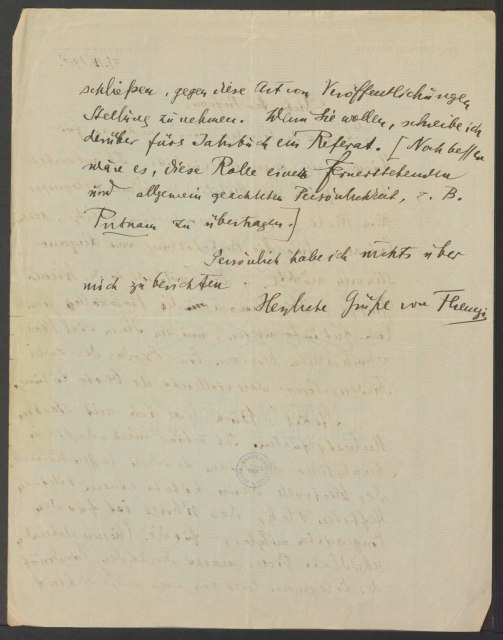 schließen, gegen diese Art von Veröffentlichungen
Stellung zu nehmen. Wenn Sie wollen, schreibe ich
darüber fürs Jahrbuch ein Referat. [Noch besser
wäre es, diese Rolle einem Fernerstehenden
und allgemein geachteten Persönlichkeit, z. B.
Putnam zu übertragen.]
Persönlich habe ich nichts über
mich zu berichten
Herzliche Grüße von